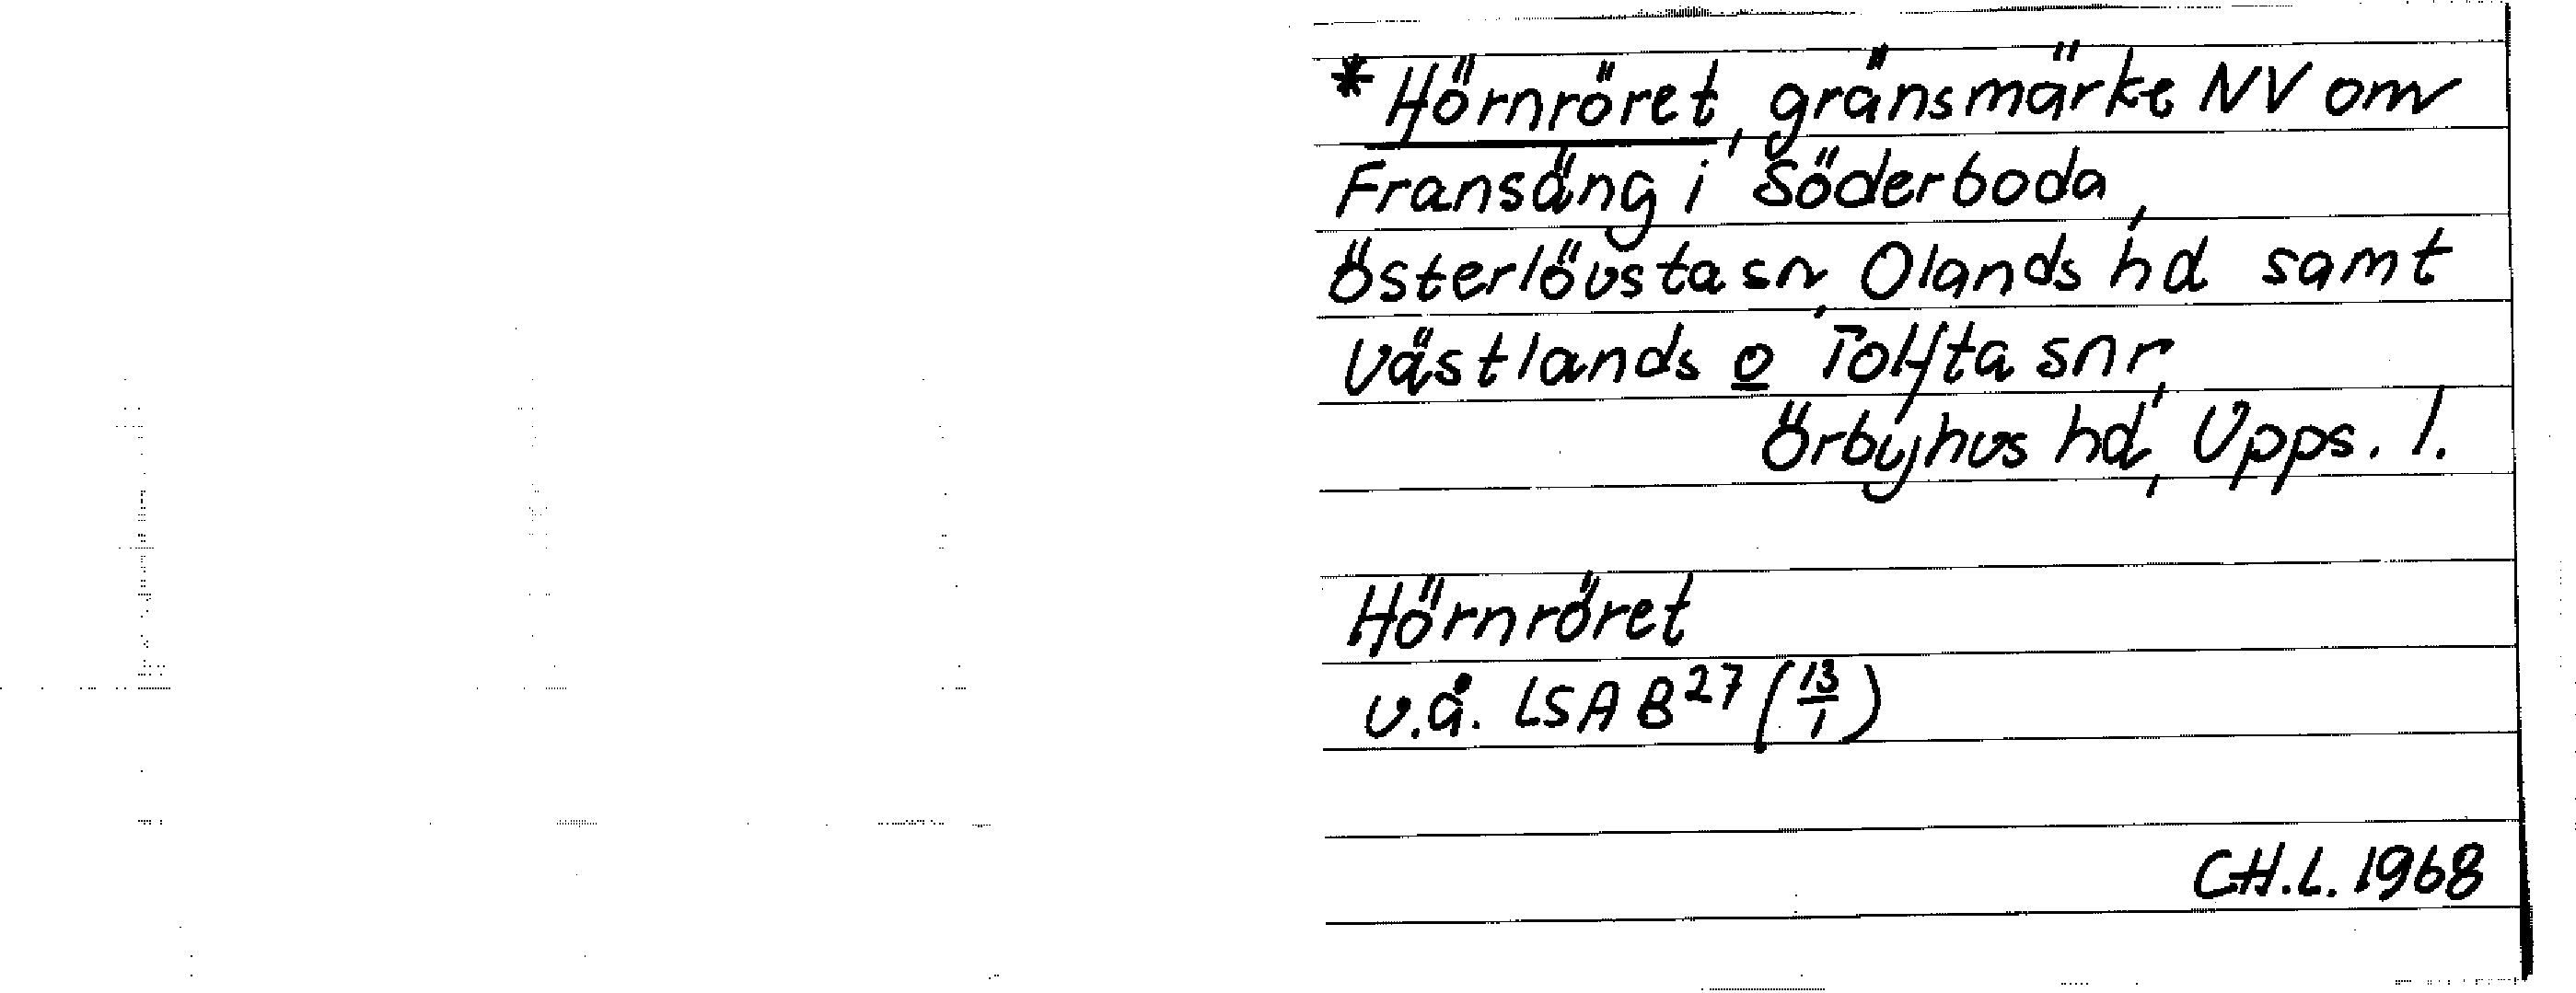 * Hörnröret, gränsmärke NV om
Fransäng i Söderboda,
Österlövsta sn, Olands hd samt
Västlands o Tolfta snr,
Örbyhus hd, Upps. l.
Hörnröret
u.å. LSA B27 (13/1)
C.H.L. 1968